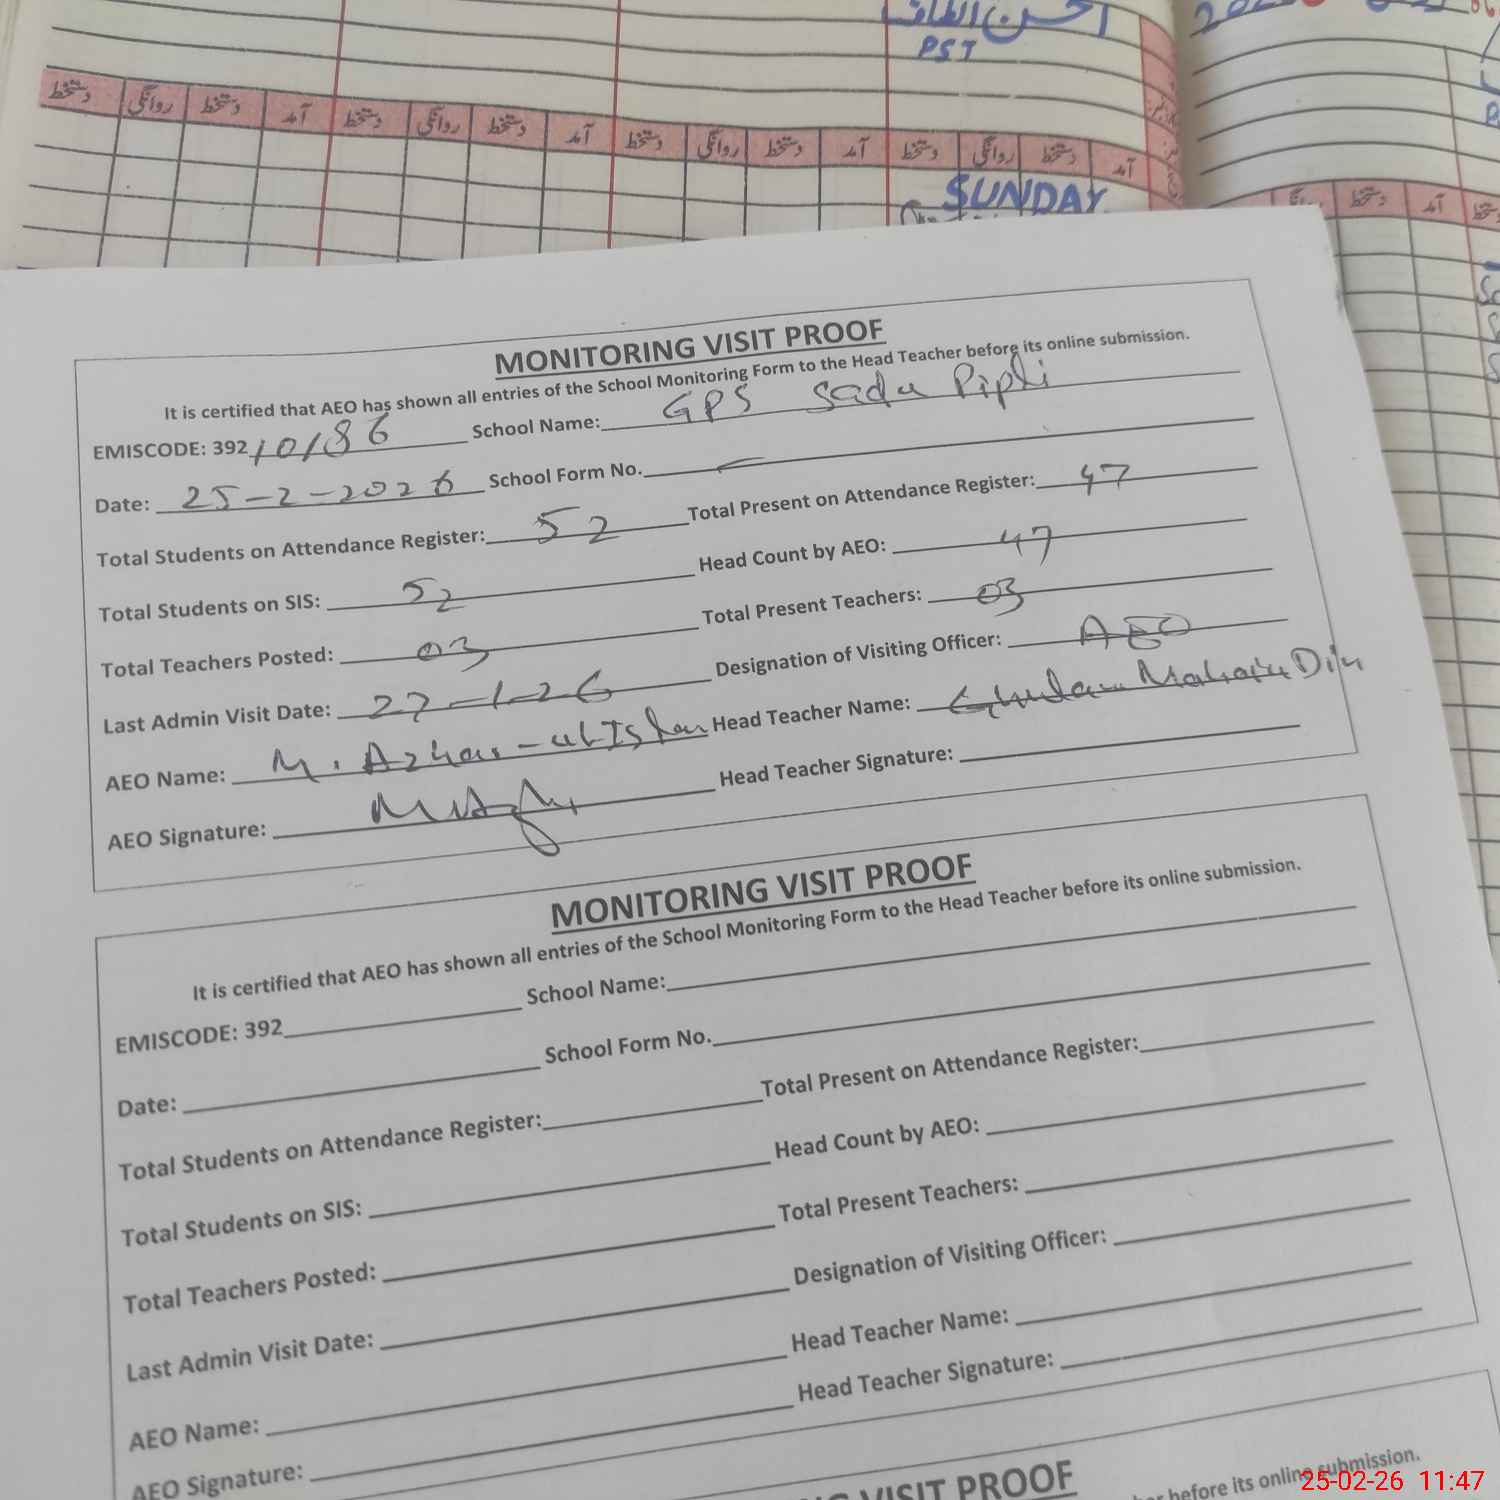 احسن الطاف
PST
دستخط روانگی دستخط آمد دستخط روانگی دستخط آمد دستخط روانگی دستخط آمد دستخط روانگی دستخط آمد
دستخط آمد
SUNDAY
MONITORING VISIT PROOF
It is certified that AEO has shown all entries of the School Monitoring Form to the Head Teacher before its online submission.
EMISCODE: 392 10186 School Name: GPS Sada Pipli
Date: 25-2-2026 School Form No.
Total Students on Attendance Register: 52 Total Present on Attendance Register: 47
Total Students on SIS: 52 Head Count by AEO: 47
Total Teachers Posted: 03 Total Present Teachers: 03
Last Admin Visit Date: 27-1-26 Designation of Visiting Officer: AEO
AEO Name: M. Azhar-ul-Islam Head Teacher Name: Ghulam Mohaiu Din
AEO Signature: Head Teacher Signature:
MONITORING VISIT PROOF
It is certified that AEO has shown all entries of the School Monitoring Form to the Head Teacher before its online submission.
EMISCODE: 392 School Name:
Date: School Form No.
Total Students on Attendance Register: Total Present on Attendance Register:
Total Students on SIS: Head Count by AEO:
Total Teachers Posted: Total Present Teachers:
Last Admin Visit Date: Designation of Visiting Officer:
AEO Name: Head Teacher Name:
AEO Signature: Head Teacher Signature:
VISIT PROOF
before its online submission.
25-02-26 11:47